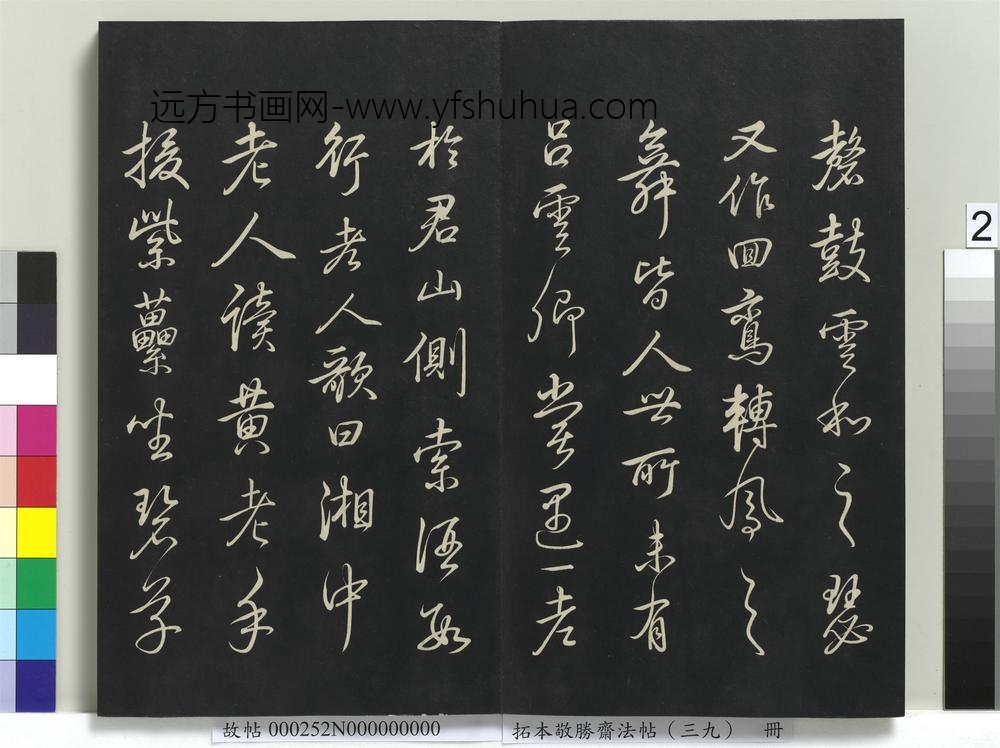 远方书画网-www.yfshuhua.com
鼓雲和之瑟
又作回鸞轉鳳之
舞皆人世所未有
吕雲卿嘗遇一老
於君山側索酒數
行老人歌曰湘中
老人讀黄老手
援紫藟坐碧草
2
故帖 000252N000000000
拓本敬勝齋法帖（三九） 冊